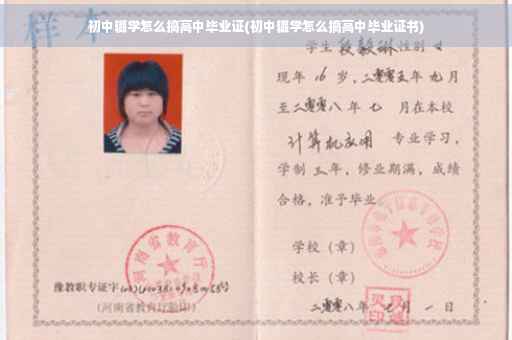 初中辍学怎么搞高中毕业证(初中辍学怎么搞高中毕业证书)
样本
学生段毅琳性别女
现年16岁，二零零五年九月
至二零零八年七月在本校
计算机应用 专业学习，
学制三年，修业期满，成绩
合格，准予毕业
学校（章）
校长（章）
二零零八年七月一日
河南省教育厅
豫教职专证字
(河南省教育厅验印)